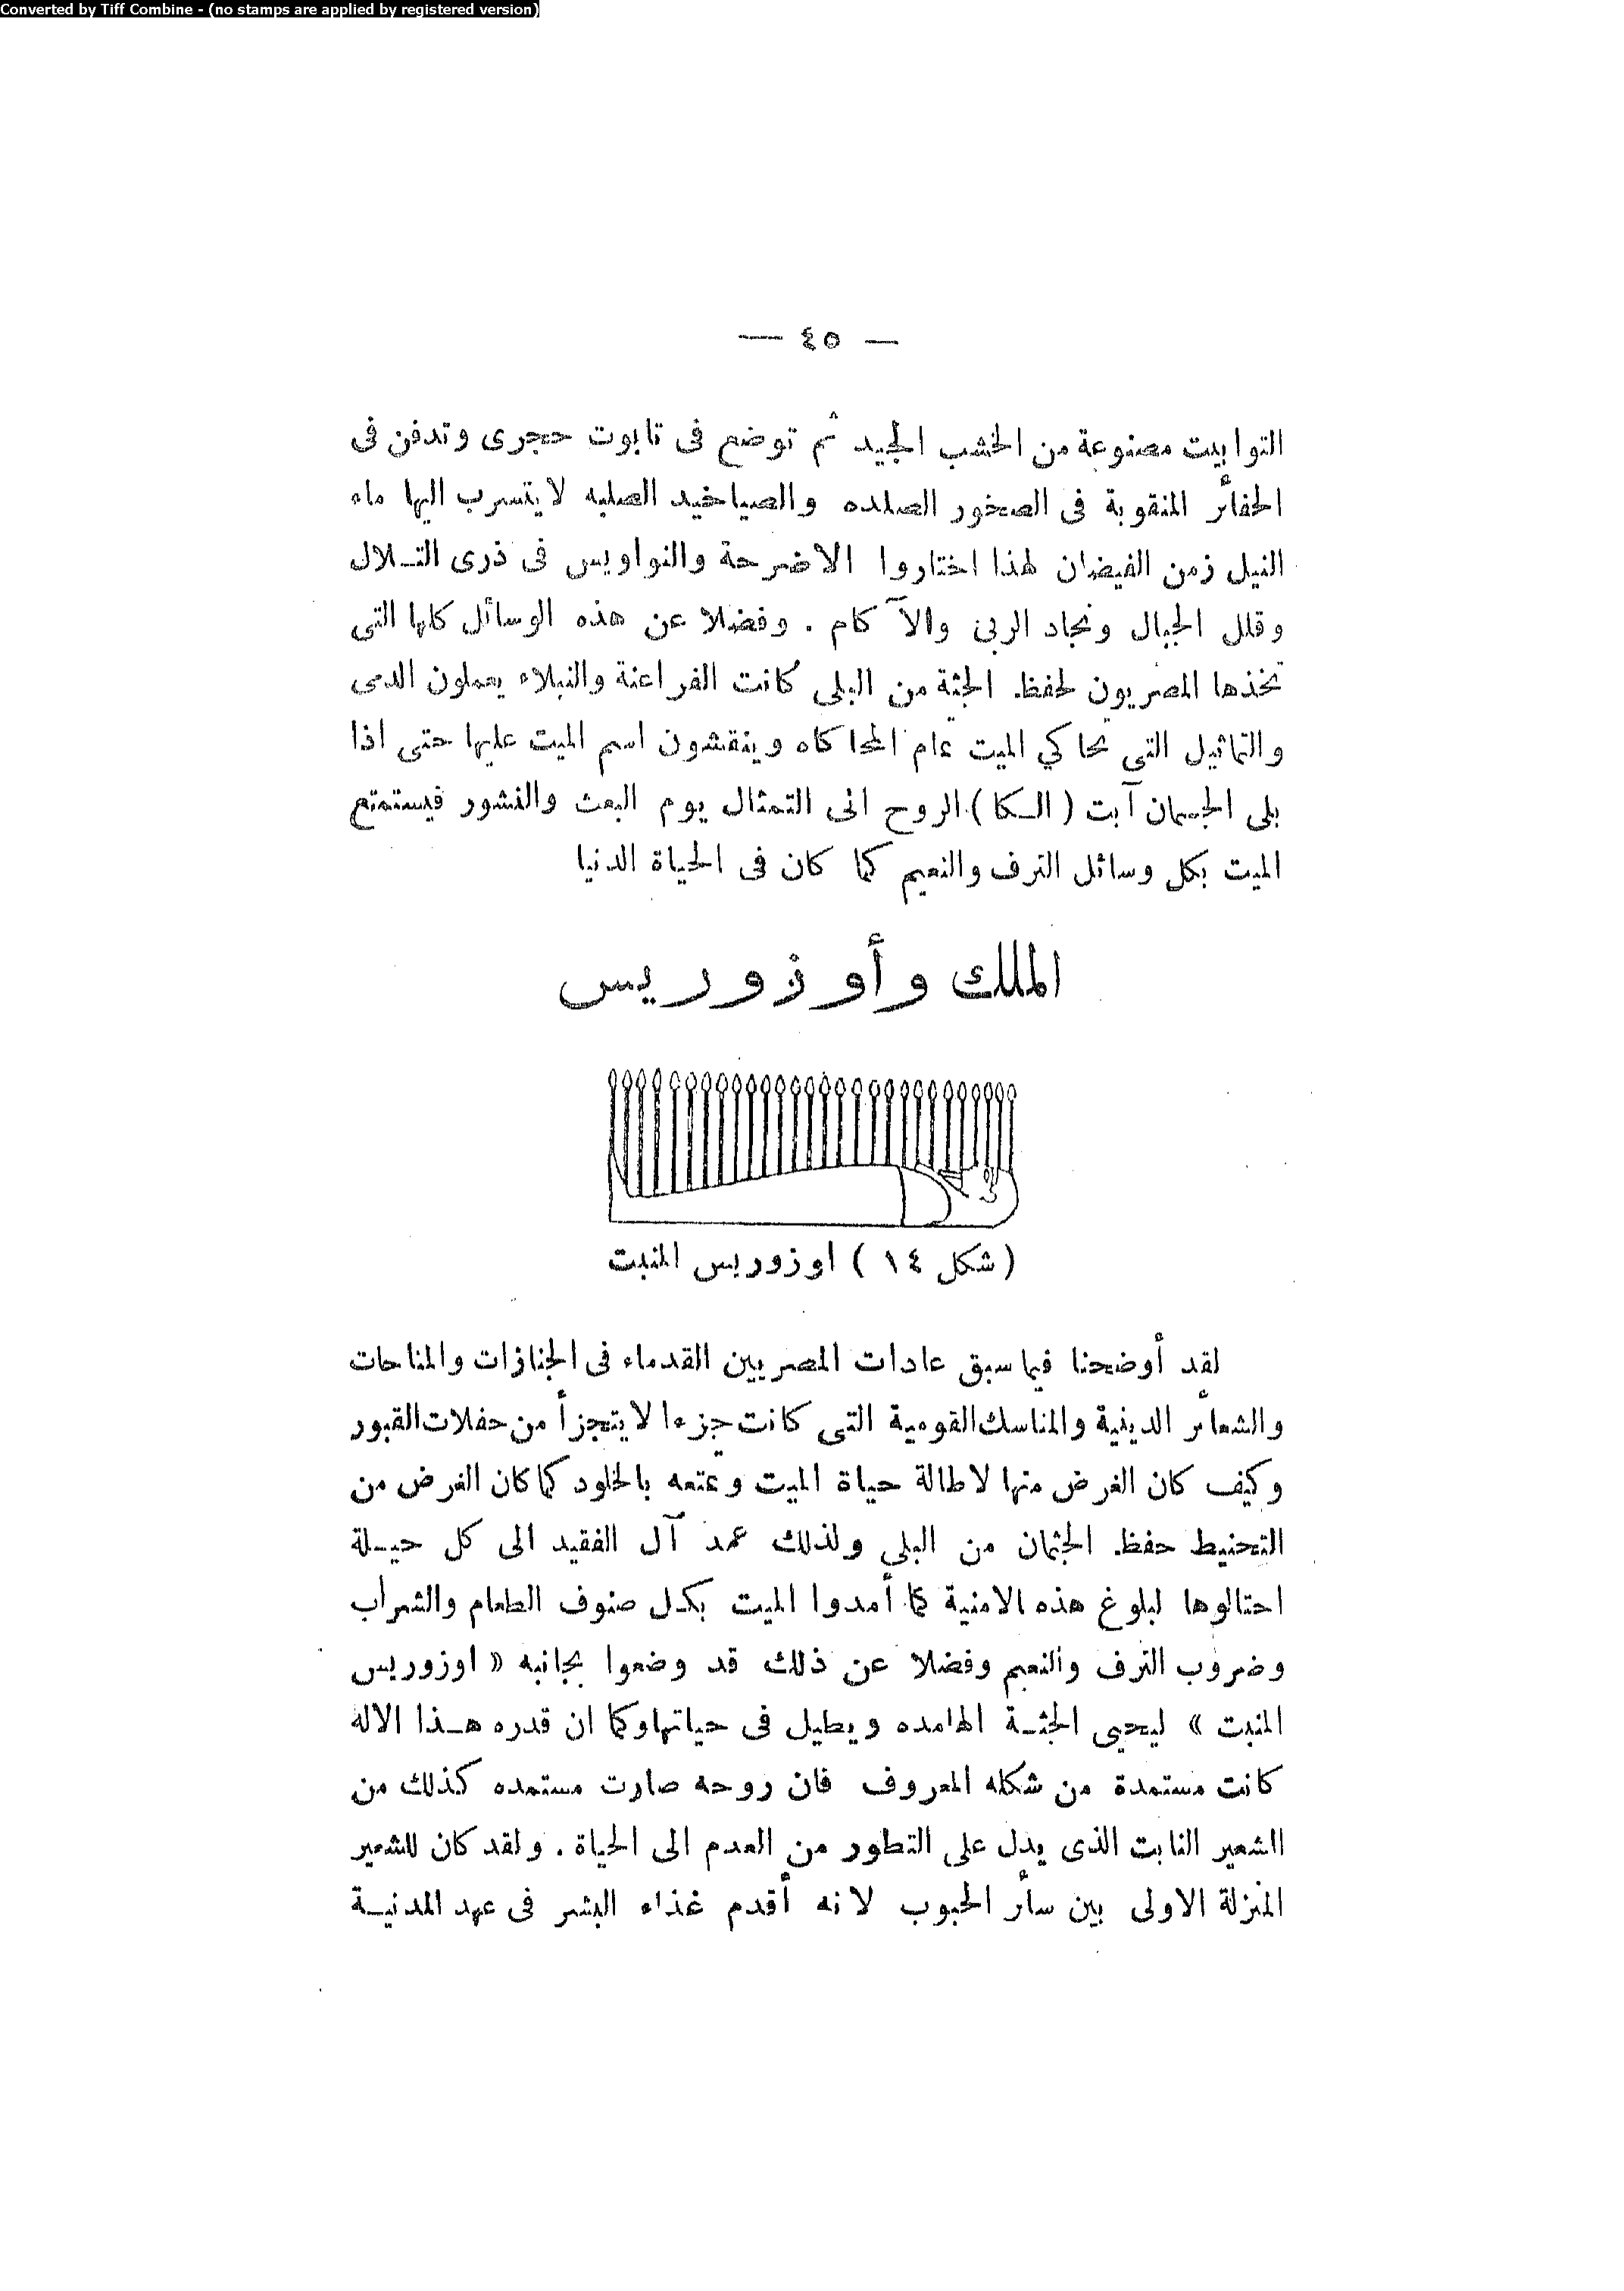 Converted by Tiff Combine - (no stamps are applied by registered version)
— ٤٥ —
التوابيت مصنوعة من الخشب الجيد ثم توضع فى تابوت حجرى وتدفن فى
الحفائر المنقوبة فى الصخور الصلده والصياخيد الصلبه لا يتسرب اليها ماء
النيل زمن الفيضان لهذا اختاروا الاضرحة والنواويس فى ذرى التـلال
وقلل الجبال ونجاد الربى والآكام . وفضلا عن هذه الوسائل كلها التى
تخذها المصريون لحفظ الجثة من البلى كانت الفراعنة والنبلاء يعملون الدمى
والتماثيل التى تحاكي الميت تمام المحاكاه وينقشون اسم الميت عليها حتى اذا
بلى الجسمان آبت ( الـكا ) الروح الى التمثال يوم البعث والنشور فيستمتع
الميت بكل وسائل الترف والنعيم كما كان فى الحياة الدنيا
الملك وأوزوريس
( شكل ١٤ ) اوزوريس المنبت
لقد أوضحنا فيما سبق عادات المصريين القدماء فى الجنازات والمناحات
والشعائر الدينية والمناسك القومية التى كانت جزءا لا يتجزأ من حفلات القبور
وكيف كان الغرض منها لاطالة حياة الميت وتمتعه بالخلود كما كان الغرض من
التحنيط حفظ الجثمان من البلى ولذلك عمد آل الفقيد الى كل حيـلة
احتالوها لبلوغ هذه الامنية كما أمدوا الميت بكل صنوف الطعام والشراب
وضروب الترف والنعيم وفضلا عن ذلك قد وضعوا بجانبه « اوزوريس
المنبت » ليحيى الجثـة الهامده ويطيل فى حياتها وكما ان قدره هـذا الاله
كانت مستمدة من شكله المعروف فان روحه صارت مستمده كذلك من
الشعير النابت الذى يدل على التطور من العدم الى الحياة . ولقد كان للشعير
المنزلة الاولى بين سائر الحبوب لانه أقدم غذاء البشر فى عهد المدنيـة